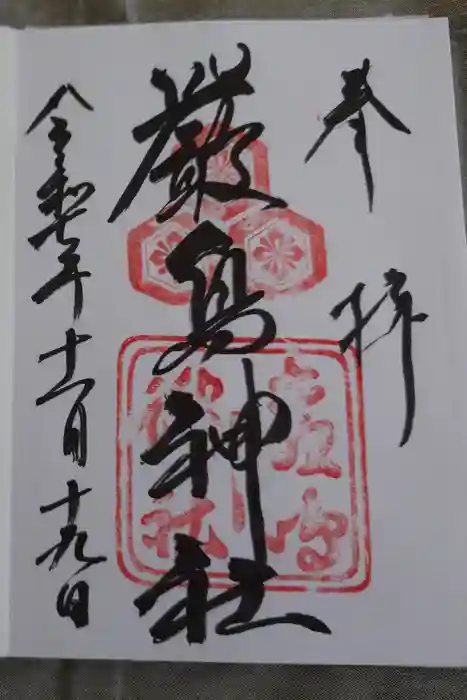 奉拝
厳島神社
令和七年十一月十九日